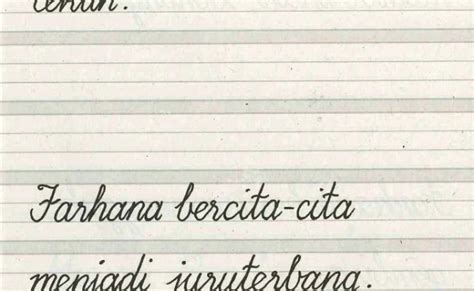 tekun.
Farhana bercita-cita
menjadi juruterbang.